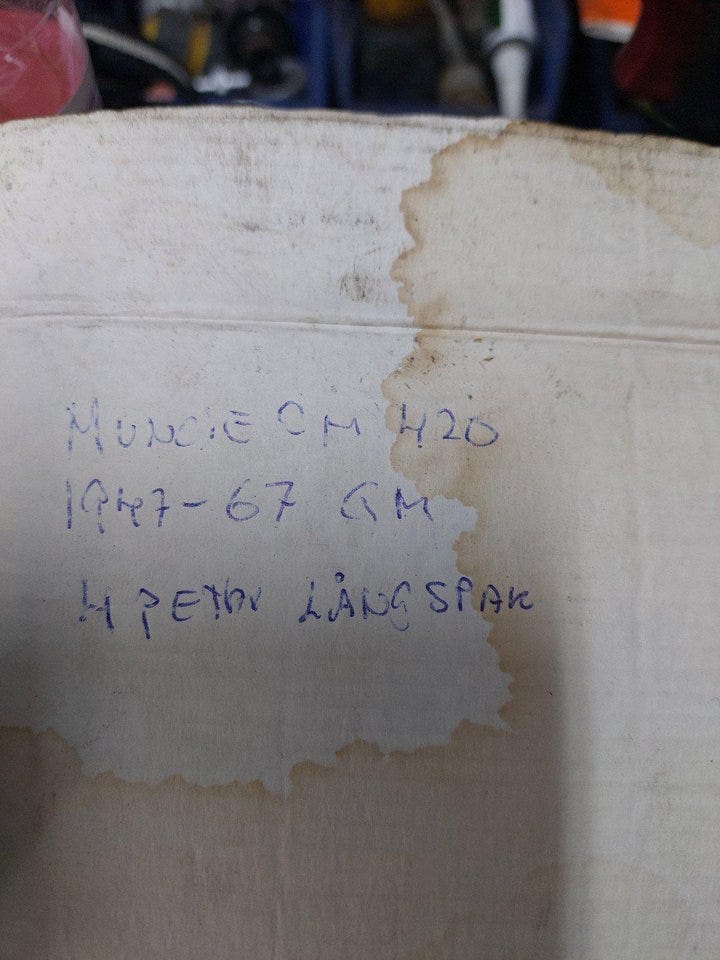 MUNCIE CM 420
1947-67 GM
4 LÅNG SPAK